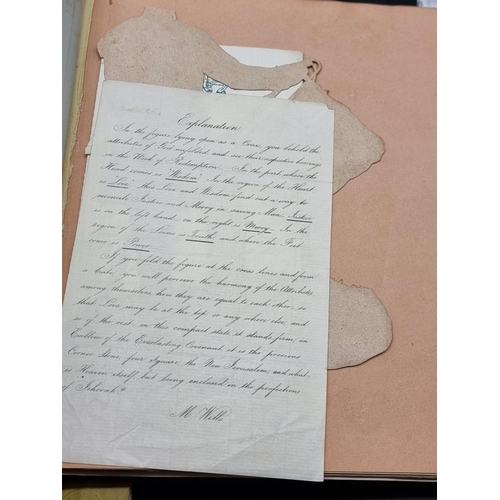 Explanation
In the figure lying open as a Cross, you behold the
attributes of God unfolded, and see their respective bearings
in the Work of Redemption. In the part where the
Head comes is "Wisdom". In the region of the Heart
is "Love". this Love and Wisdom find out a way to
reconcile Justice and Mercy in saving Man, Justice
is on the left hand, on the right is Mercy. In the
region of the Loins is Truth, and where the Feet
come is Power.
If you fold the figure at the cross lines and form
a Cube, you will perceive the harmony of the Attributes
among themselves, how they are equal to each other, so
that Love may be at the top or any where else, and
so of the rest. in this compact state it stands for an
Emblem of the Everlasting Covenant it is the precious
Corner Stone, four Square the New Jerusalem, and what
is Heaven itself but being enclosed in the perfections
of Jehovah."
M. Wills